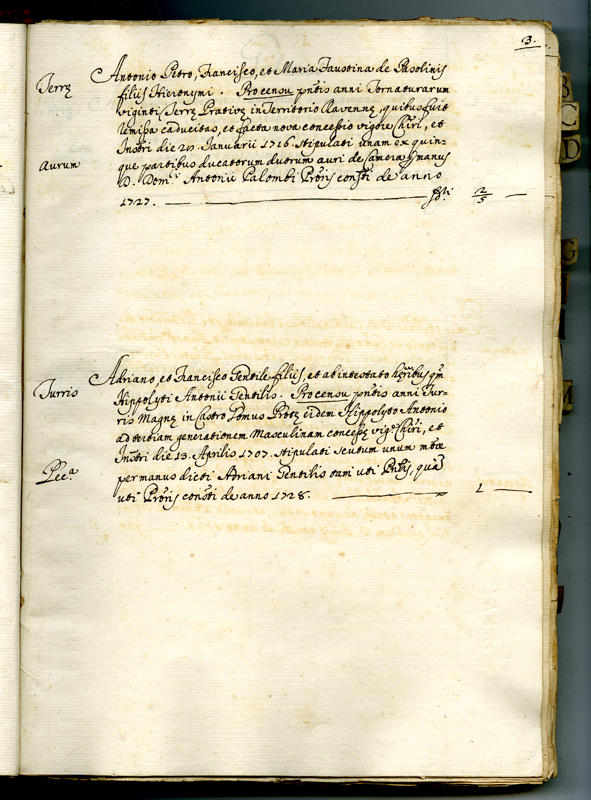 3.
Antonio Petro, Francisco, et Maria Faustina de Pasolinis
Terrę
filijs Hieronymi. Pro censu pñtis anni Tornaturarum
viginti Terrę Prativę in Territorio Ravennę, quibus fuit
remissa caducitas, et facta nova concessio vigore Chiri, et
Instri die 20. Januarij 1716. stipulati unam ex quin-
Aurum
que partibus ducatorum duorum auri de Camera p manus
D. Domci. Antonij Palombi Proris constti de anno
1727. 2/5 —
Adriano, et Francisco Gentile filijs, et ab intestato hęribus qm
Turris
Hippolyti Antonij Gentilis. Pro censu pñtis anni Tur-
ris Magnę in Castro Domus Pretę eidem Hippolyto Antonio
ad tertiam generationem Masculinam concessę vige Chiri, et
Instri die 13. Aprilis 1707. stipulati scutum unum mtæ
Peca
per manus dicti Adriani Gentilis tam uti Prlis, quã
uti Proris constti de anno 1728. — 1 —
B
C
D
G
M